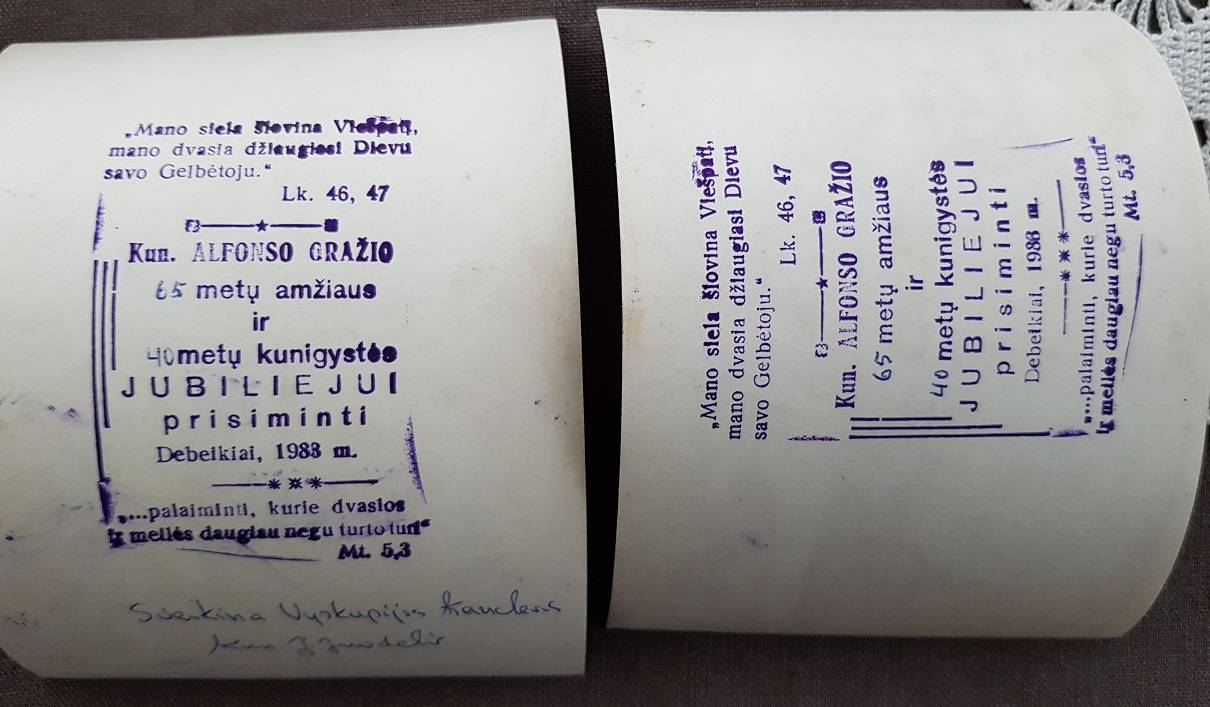 „Mano siela šlovina Viešpatį,
mano dvasia džiaugiasi Dievu
savo Gelbėtoju.“
Lk. 46, 47
Kun. ALFONSO GRAŽIO
65 metų amžiaus
ir
40 metų kunigystės
JUBILIEJUI
prisiminti
Debeikiai, 1988 m.
„...palaiminti, kurie dvasios
ir meilės daugiau negu turto turi“
Mt. 5,3
Sveikina Vyskupijos
Kun J
„Mano siela šlovina Viešpatį,
mano dvasia džiaugiasi Dievu
savo Gelbėtoju.“
Lk. 46, 47
Kun. ALFONSO GRAŽIO
65 metų amžiaus
ir
40 metų kunigystės
JUBILIEJUI
prisiminti
Debeikiai, 1988 m.
„...palaiminti, kurie dvasios
ir meilės daugiau negu turto turi“
Mt. 5,3